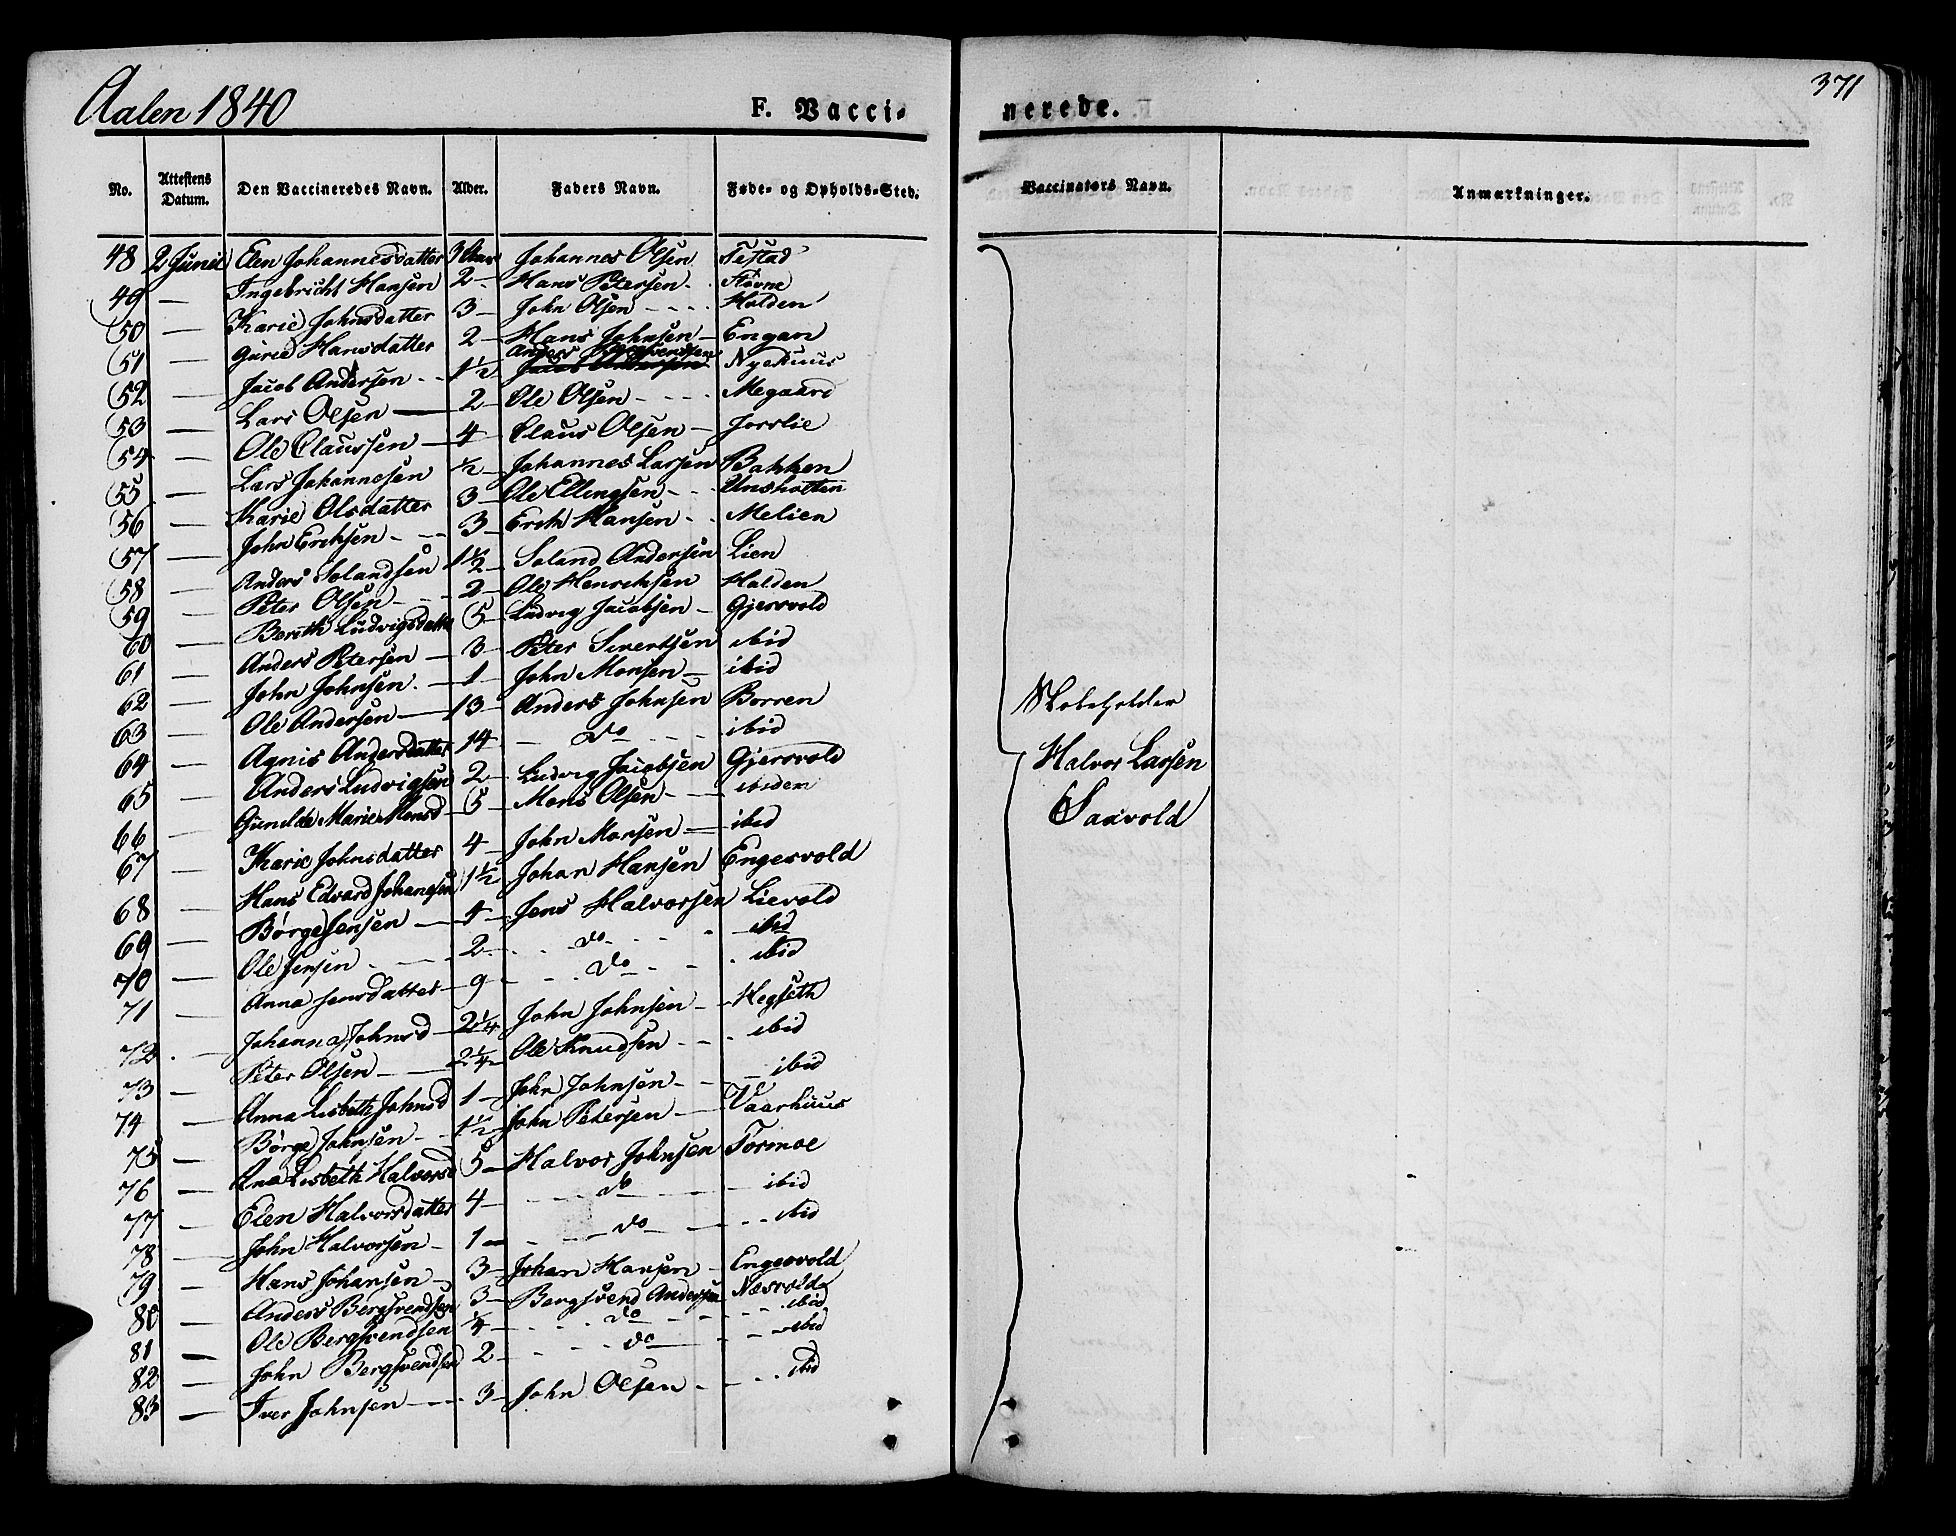 Aalen 1840
F. Vacci- nerede. 371
No. Attestens Datum. Den Vaccineredes Navn. Alder. Faders Navn. Føde- og Opholds-Sted. Vaccinatørs Navn. Anmærkninger.
48 2 Junii Elen Johannesdatter 3 Aar Johannes Olsen
49 — Ingebricht Hansen 2 - Hans Petersen - Fløvne
50 — Karie Johnsdatter 3 - John Olsen - - - Holden
51 — Gurie Hansdatter 2 - Hans Johnsen - Engan
52 — Jacob Andersen - - 1½ Anders Bergsvendsen Nyehuus
53 — Lars Olsen — 2 - Ole Olsen - - - Megaard
54 — Ole Claussen — 4 - Claus Olsen - Jorslie
55 — Lars Johannesen ½ - Johannes Larsen Bakken
56 — Karie Olsdatter 3 - Ole Ellingsen - - Unsholten
57 — John Erichsen - - 3 - Erich Hansen - - Melien
58 — Anders Solandsen 1½ - Soland Andersen Lien
59 — Peter Olsen - - 2 - Ole Henrichsen Holden
60 — Berith Ludvigsdatter 5 - Ludvig Jacobsen - Gjersvold
61 — Anders Petersen — 3 - Peter Sivertsen ibid
62 — John Johnsen. — 1 - John Monsen — ibid
63 — Ole Andersen — 13 - Anders Johnsen Borren
64 — Agnis Andersdatter 14 - — do - - - ibid
65 — Anders Ludvigsen 2 - Ludvig Jacobsen Gjersvold
66 — Gunilde Marie Monsd 5 - Mons Olsen — ibidem
67 — Karie Johnsdatter 4 - John Monsen — ibid
68 — Hans Edvard Johansen 1½ Johan Hansen Engesvold
69 — Børge Jensen — 4 - Jens Halvorsen Lievold
70 — Ole Jensen - — 2 - - - do - - - ibid
71 — Anna Jensdatter — 9 - - - do - - - ibid
72 — Johanna Johnsd — 2¼ John Johnsen — Hegseth
73 — Peter Olsen — 2¼ Ole Knudsen - - - ibid
74 — Anna Lisbeth Johnsd 1 - John Johnsen - - - ibid
75 — Børge Johnsen - - 1½ John Petersen — Vaarhuus
76 — Ana Lisbeth Halvorsd 5 - Halvor Johnsen Tormoe
77 — Elen Halvorsdatter 4 - - - do — ibid
78 — John Halvorsen - 1 - - - do — - - ibid
79 — Hans Johansen - 3 - Johan Hansen - Engesvold
80 — Anders Bergsvendsen 3 - Bergsvend Andersen Næsvold
81 — Ole Bergsvendsen ¼ - - - do - - - ibid
82 — John Bergsvendsen 2 - - - do — - - ibid
83 — Iver Johnsen - - - 3 - John Olsen - - - ibid
Skoleholder
Halvor Larsen
Saxvold